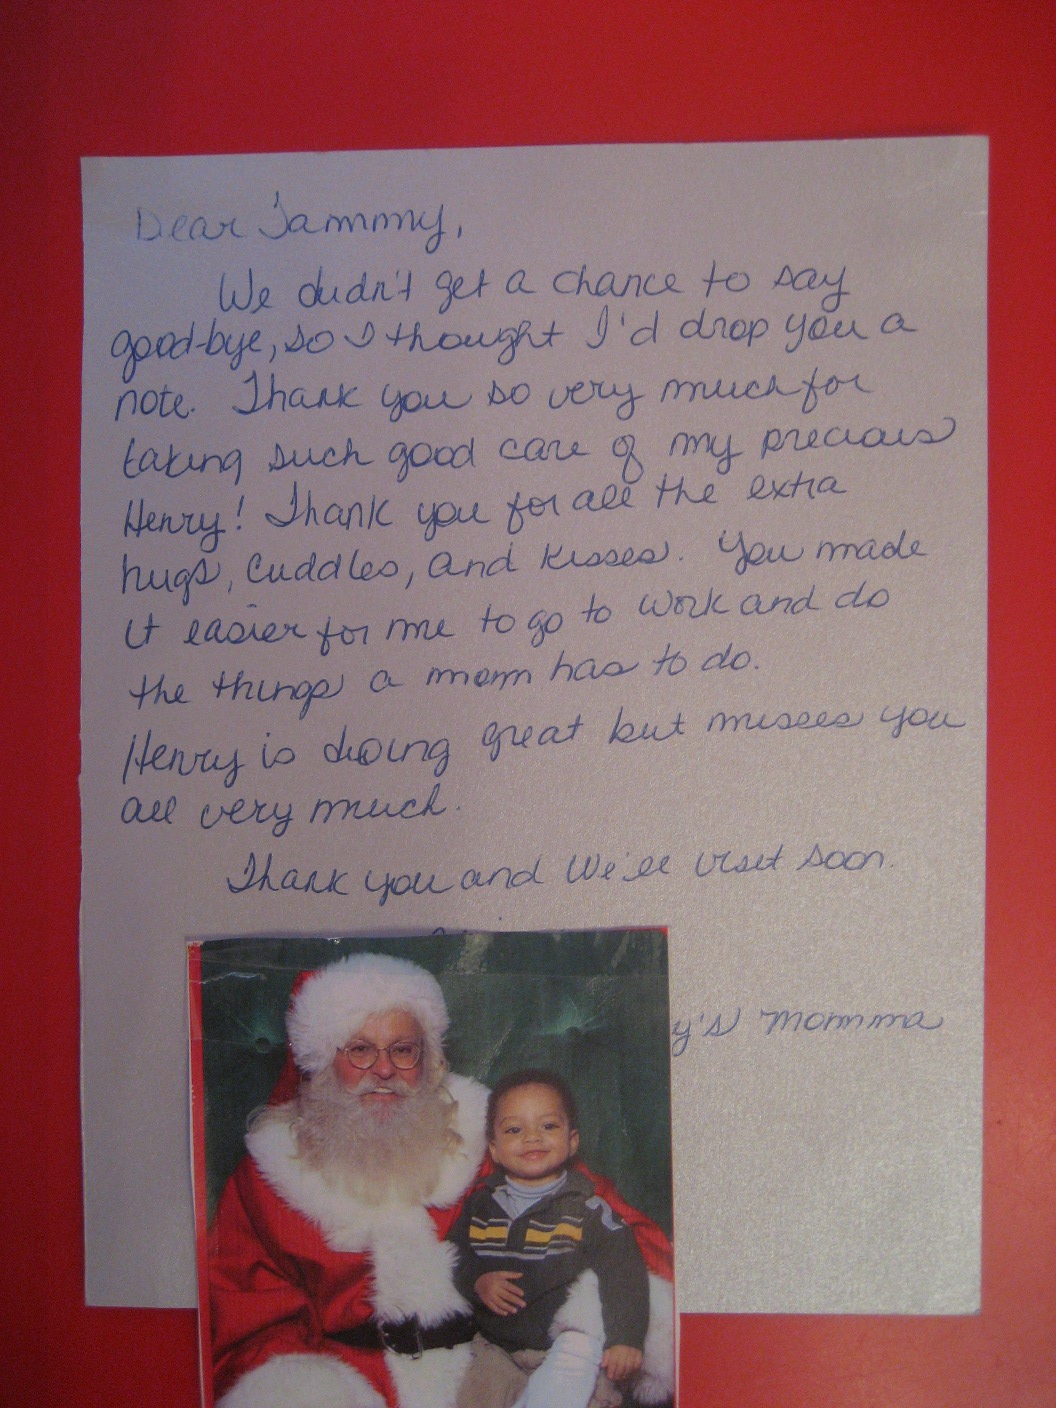 Dear Tammy,
We didn't get a chance to say
good-bye, so I thought I'd drop you a
note. Thank you so very much for
taking such good care of my precious
Henry! Thank you for all the extra
hugs, cuddles, and kisses. You made
it easier for me to go to work and do
the things a mom has to do.
Henry is doing great but misses you
all very much.
Thank you and We'll visit soon.
y's Momma